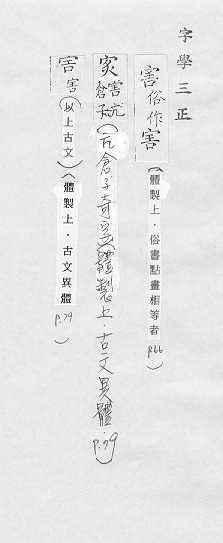 字學三正
害俗作害(體製上．俗書點畫相等者 p66)
害亢倉子(亢倉子奇字)(體製上．古文異體．p.79)
害害(以上古文)(體製上．古文異體 p.79)